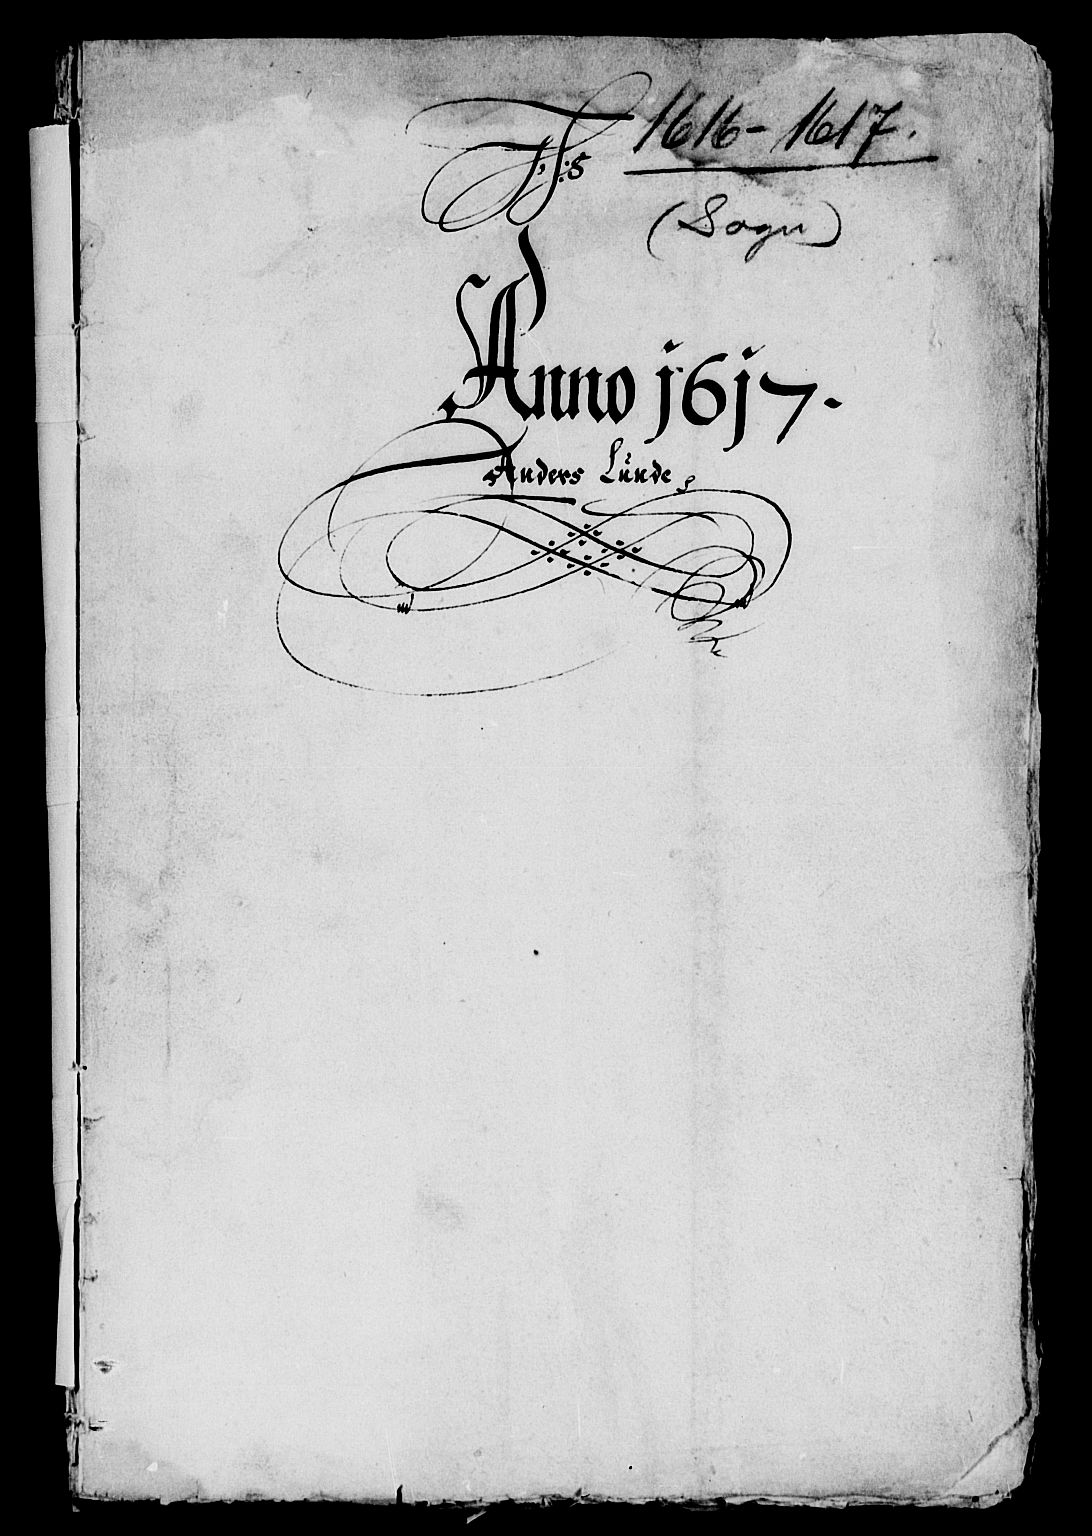 1616-1617.
(Sogn)
Anno 1617.
Anders Lünde